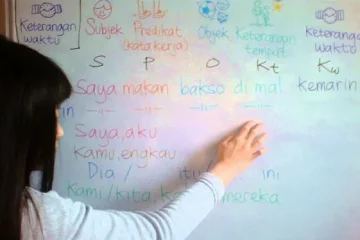 Keterangan waktu
Subjek
Predikat (kata kerja)
Objek
Keterangan tempat
Keterangan waktu
S P O Kt Kw
Saya makan bakso di mal kemarin
in —"— —"— —"— —"—
Saya, aku
Kamu, engkau
Dia / itu ini
Kami/kita, mereka